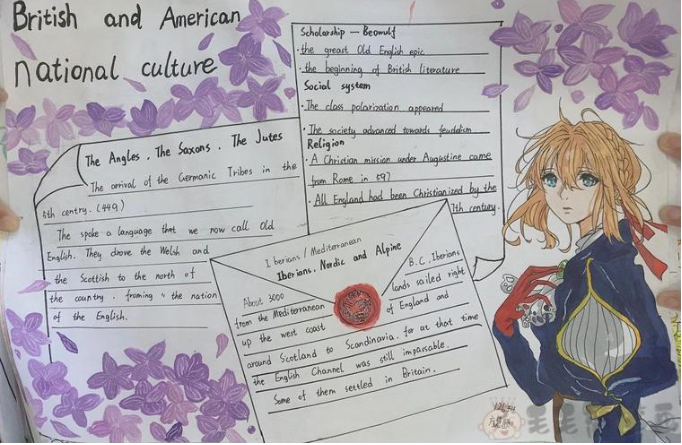 British and American
national culture
Scholarship — Beowulf
· the greast Old English epic
· the beginning of British literature
Social system
· The class polarization appeared
· The society advanced towards feudalism
Religion
· A Christian mission under Augustine came
from Rome in 597
· All England had been Christianized by the
7th century.
The Angles, The Saxons, The Jutes
The arrival of the Germanic Tribes in the
4th centry. (449)
The spoke a language that we now call Old
English. They drove the Welsh and
the Scottish to the north of
the country, froming the nation
of the English.
Iberians / Mediterranean
Iberians, Nordic and Alpine
About 3000 B.C. Iberians
from the Mediterranean lands sailed right
up the west coast of England and
around Scotland to Scandinavia, for at that time
the English Channel was still impassable.
Some of them settled in Britain.